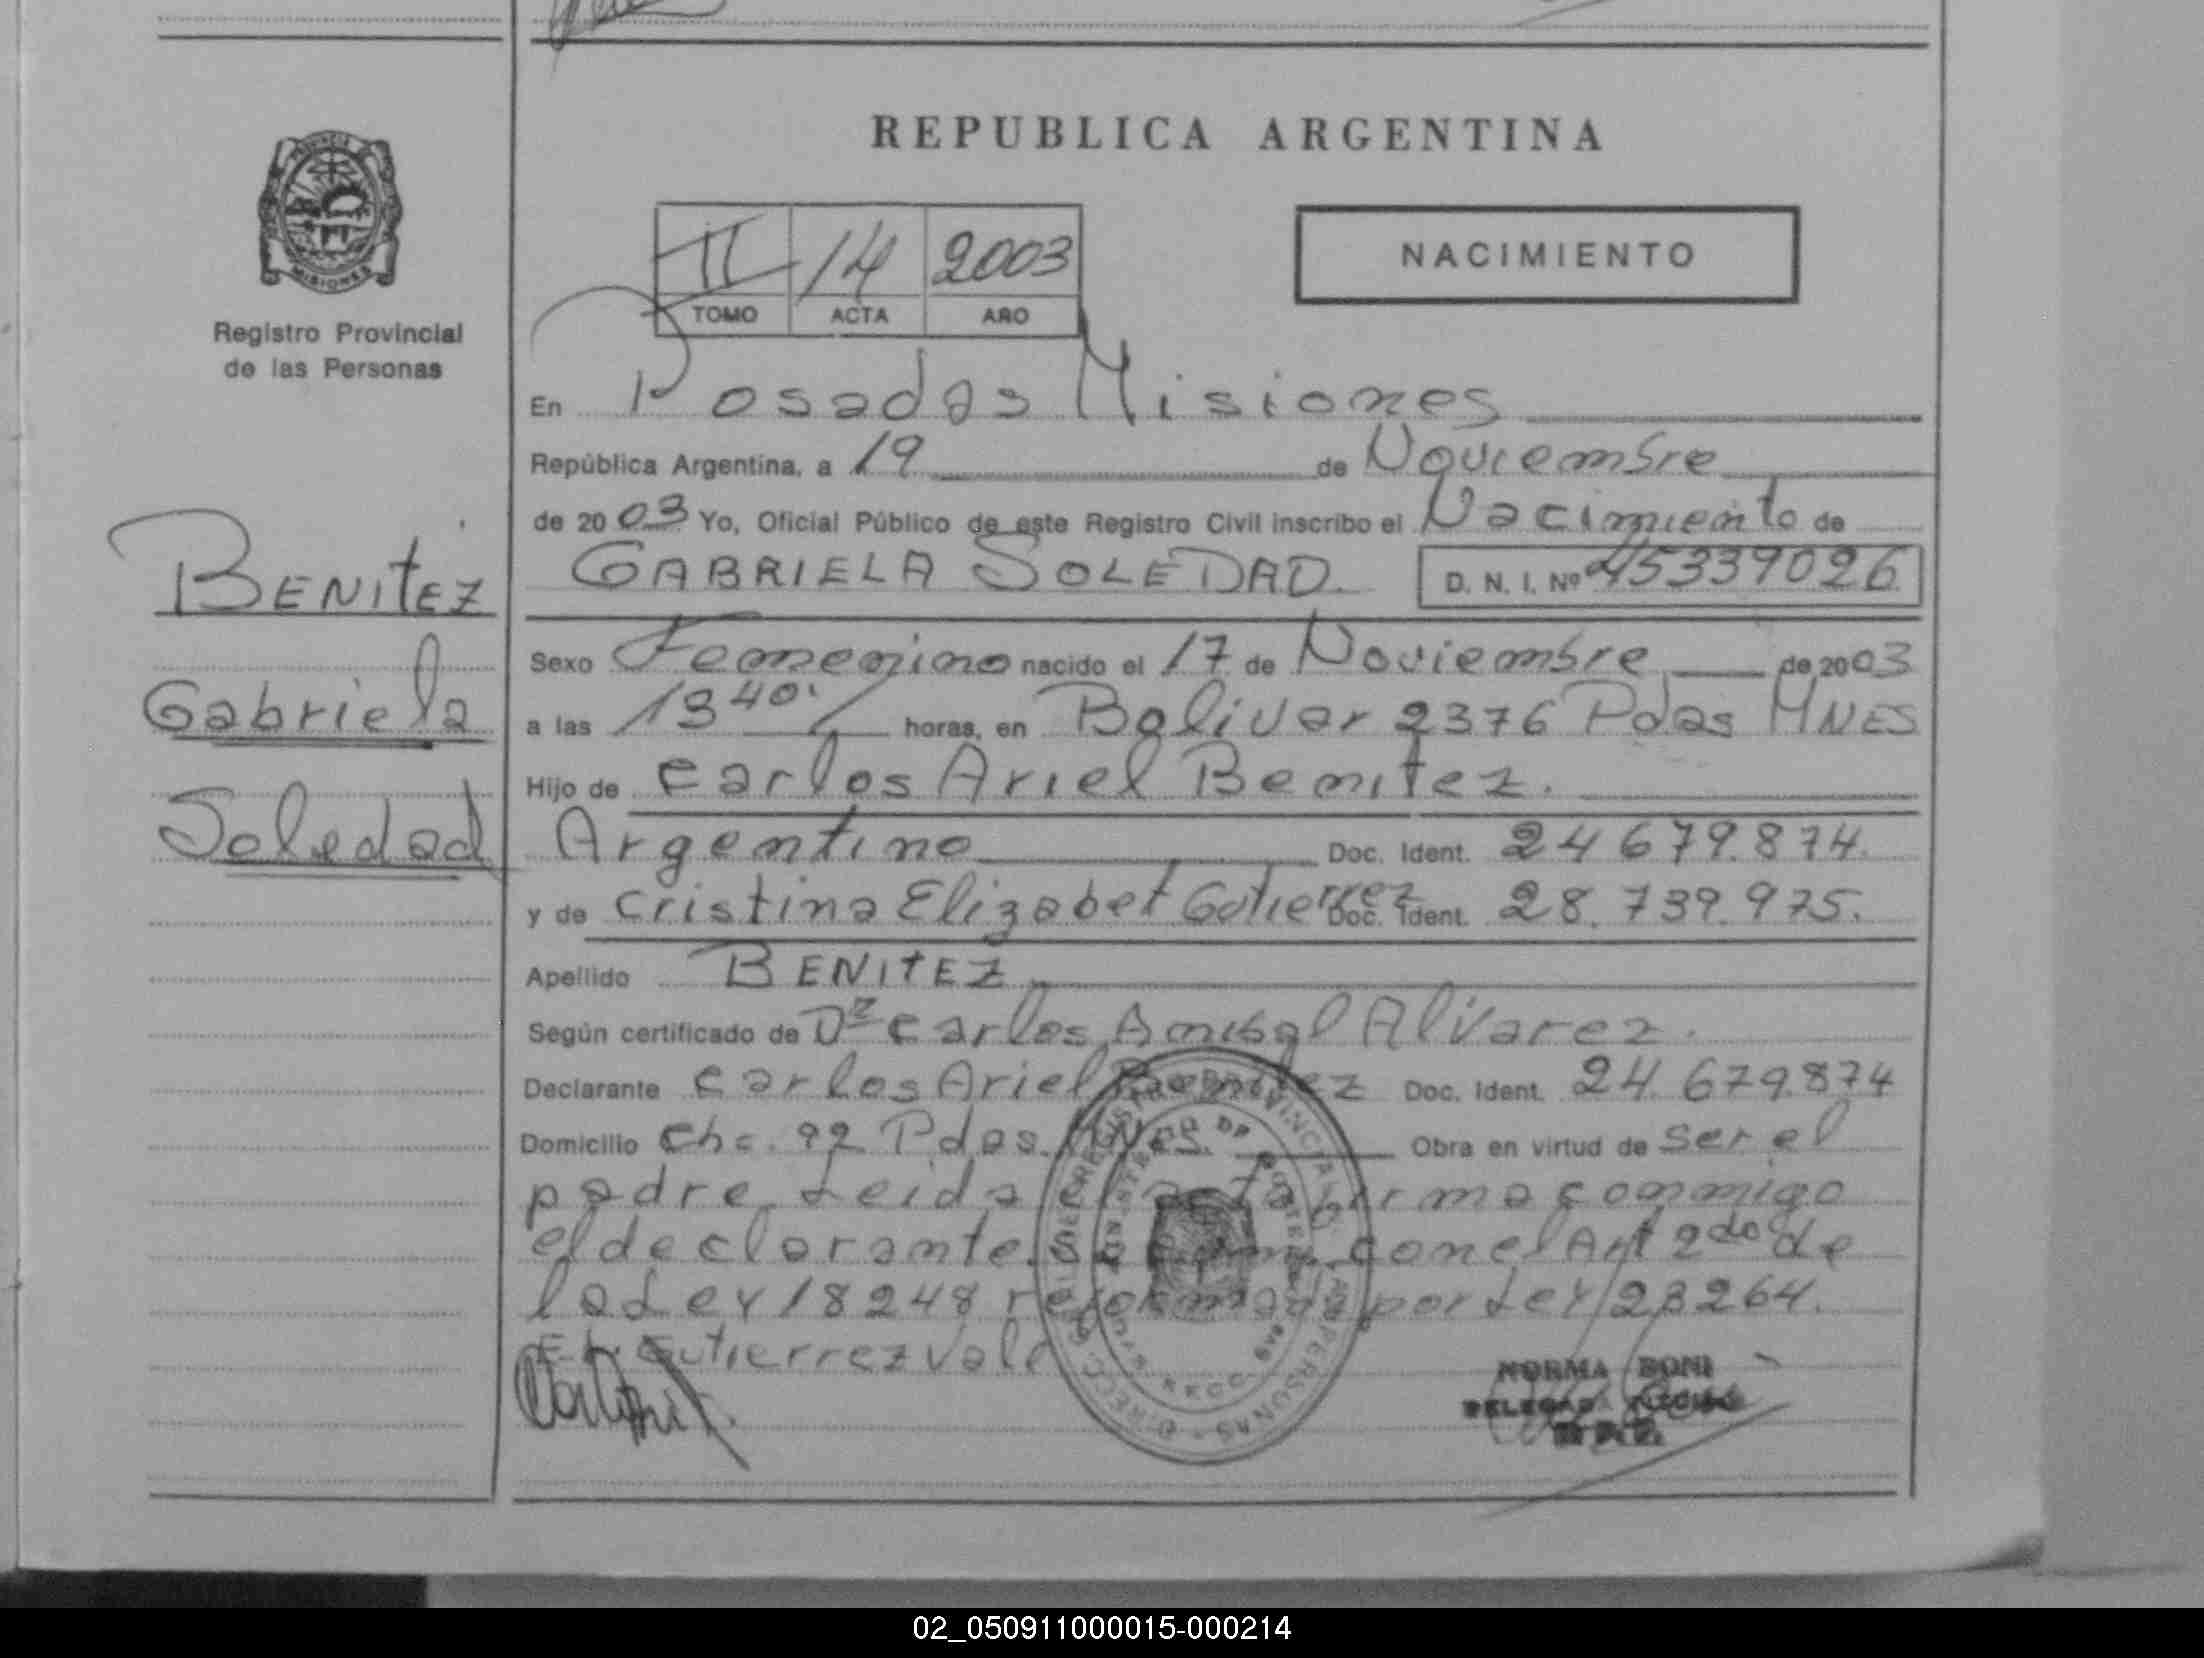 REPUBLICA ARGENTINA
PROVINCIA DE
MISIONES
Registro Provincial
de las Personas
II 14 2003
TOMO ACTA AÑO
NACIMIENTO
BENITEZ
Gabriela
Soledad
En Posadas Misiones
República Argentina, a 19 de Noviembre
de 2003 Yo, Oficial Público de este Registro Civil inscribo el Nacimiento de
GABRIELA SOLEDAD. D. N. I. Nº 45339026
Sexo Femenino nacido el 17 de Noviembre de 2003
a las 13 40' horas, en Bolivar 2376 Pdas MNES
Hijo de Carlos Ariel Benitez.
Argentino Doc. Ident. 24 679.874.
y de Cristina Elizabet Gutierrez Doc. Ident. 28.739.975.
Apellido BENITEZ
Según certificado de Dr Carlos Anibal Alvarez.
Declarante Carlos Ariel Benitez Doc. Ident. 24.679.874
Domicilio Chc. 92 Pdas. MNes. Obra en virtud de ser el
padre Leida el acta firma conmigo
el declarante. con el Art 2do de
la Ley 18248 reformada por Ley 23264.
E-L: Gutierrez Vale
NORMA BONI
R.P.P.
02_050911000015-000214